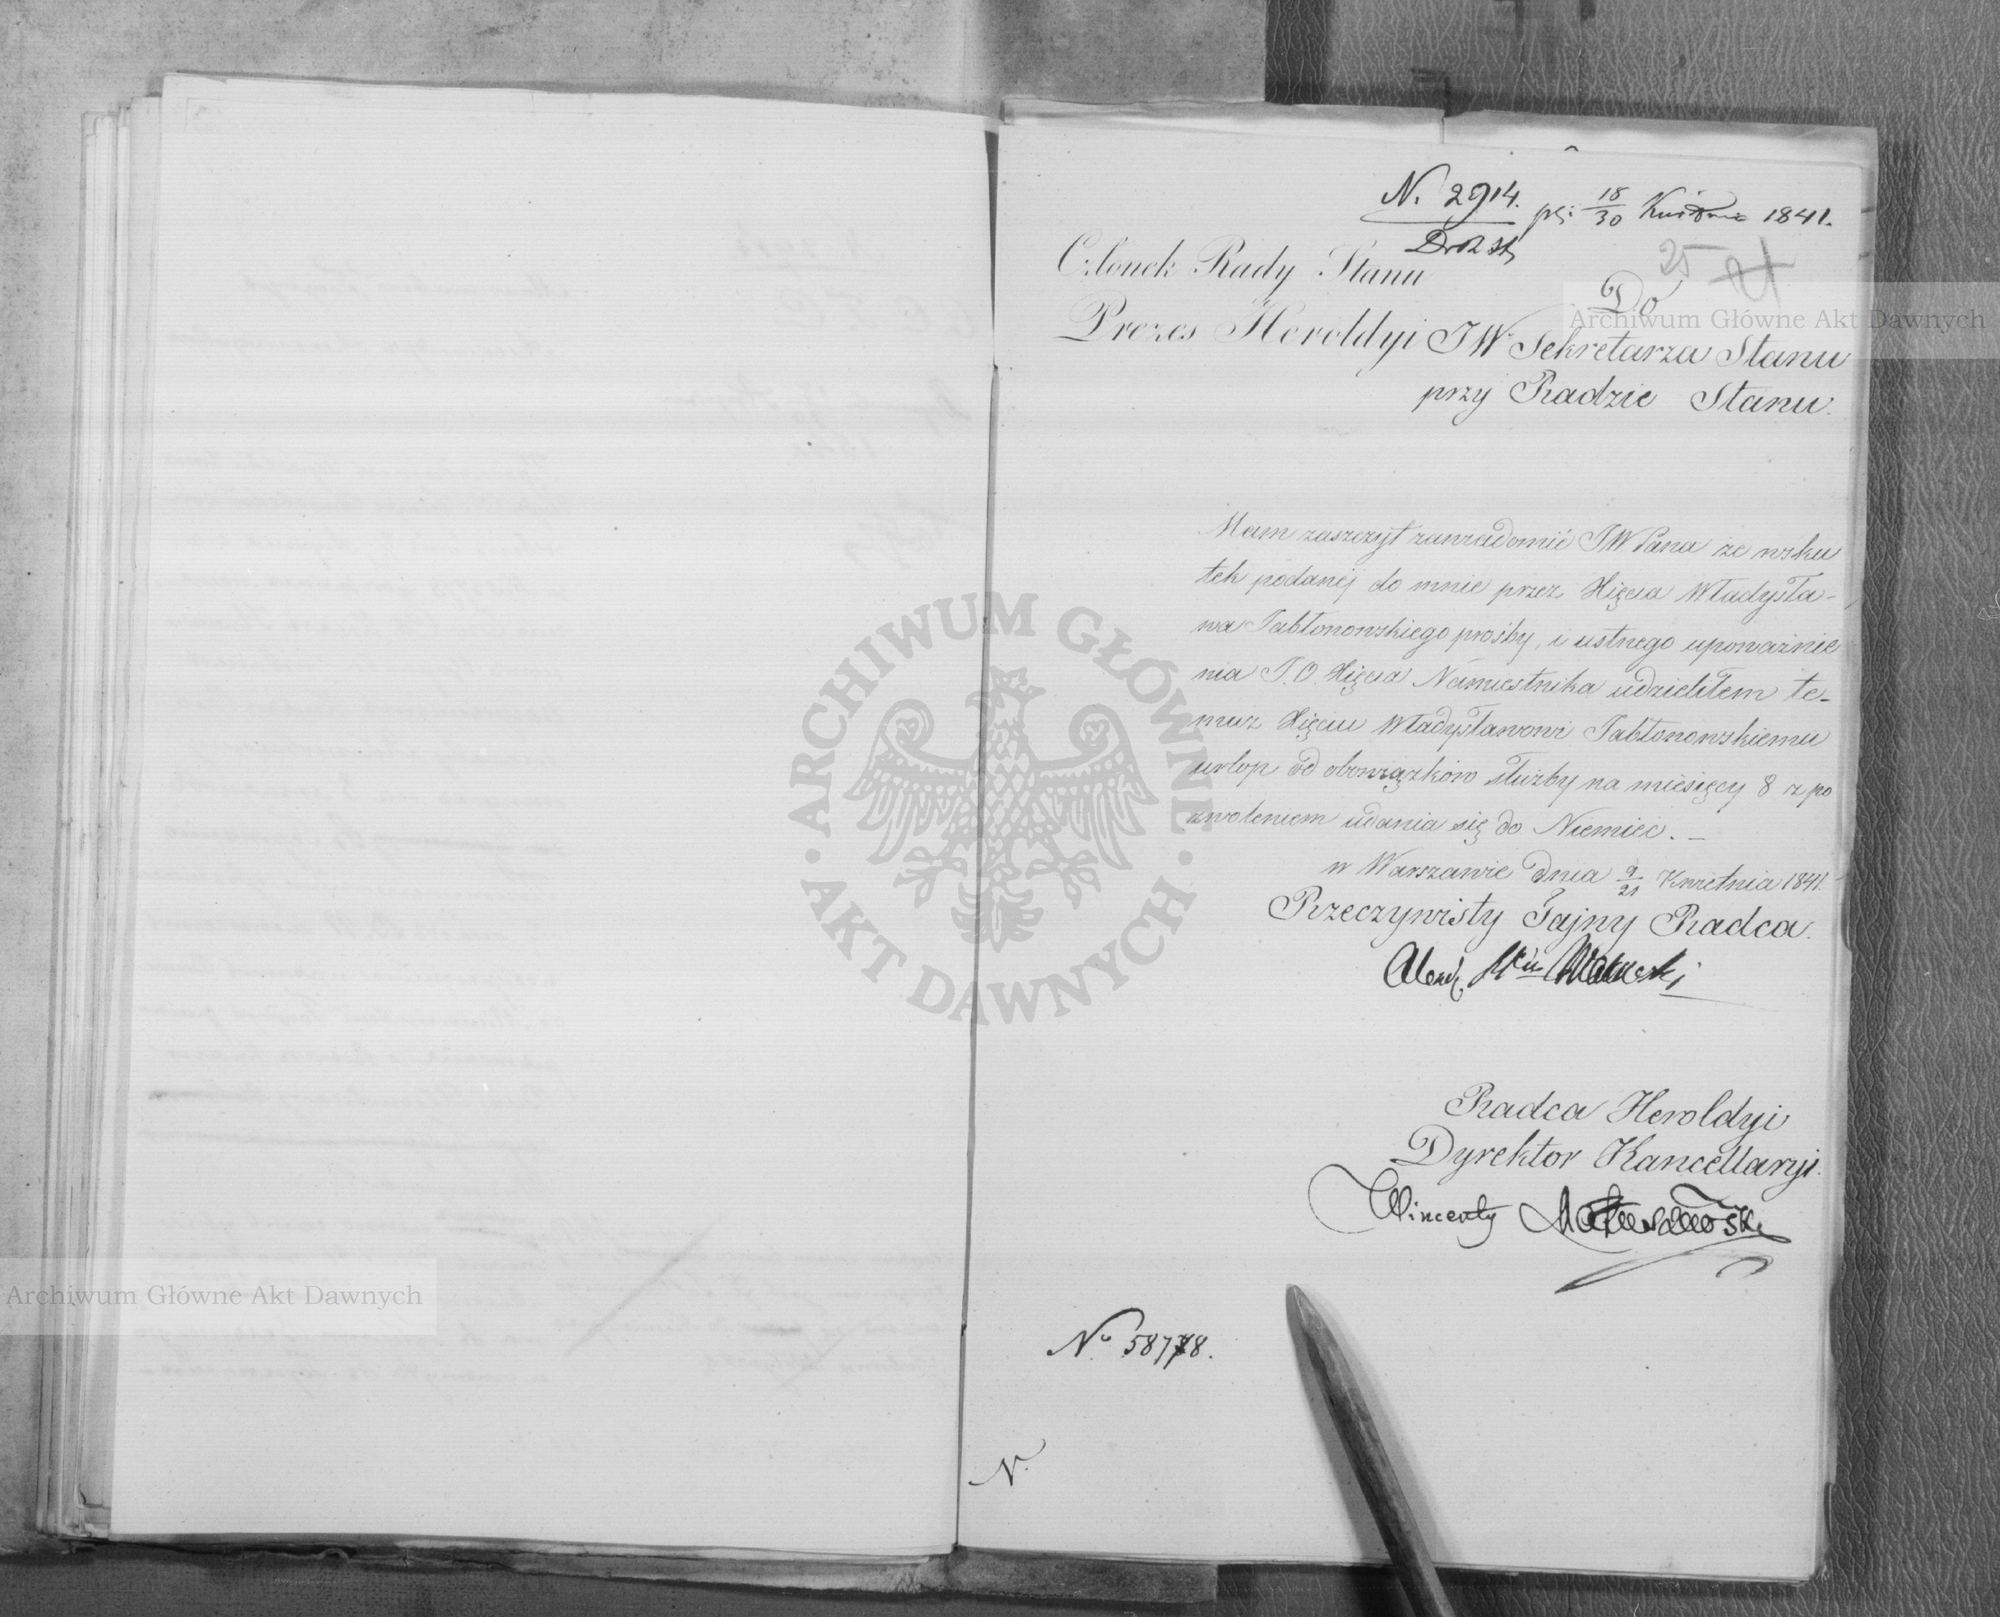 N. 2914. 18/30 1841.
25
Członek Rady Stanu
Prezes Heroldyi
Do
JW. Sekretarza Stanu
przy Radzie Stanu.
Mam zaszczyt zawiadomić JW Pana że wsku
tek podanéj do mnie przez Xięcia Władysła-
wa Jabłonowskiego prośby, i ustnego upoważnie
nia J.O. Xięcia Namiestnika udzieliłem te-
muż Xięciu Władysławowi Jabłonowskiemu
urlop od obowiązków służby na miesięcy 8 z po
zwoleniem udania się do Niemiec. —
w Warszawie dnia 9/21 Kwietnia 1841.
Rzeczywisty Tajny Radca.
Radca Heroldyi
Dyrektor Kancellaryi.
Wincenty
No 58778.
N.
Archiwum Główne Akt Dawnych
Archiwum Główne Akt Dawnych
ARCHIWUM GŁÓWNE
AKT DAWNYCH